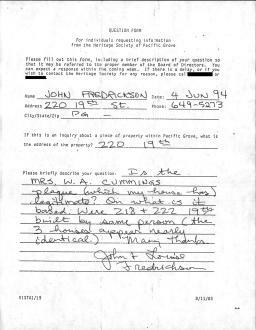 QUESTION FORM
For individuals requesting information
from the Heritage Society of Pacific Grove
Please fill out this form, including a brief description of your question so
that it may be referred to the proper member of the Board of Directors. You
can expect a response within the coming week. If there is a delay, or if you
wish to contact the Heritage Society for any reason, please call or
Name JOHN FREDRICKSON Date: 4 JUN 94
Address 220 19th St. Phone: 649-5273
City/State/Zip PG -
If this is an inquiry about a piece of property within Pacific Grove, what is
the address of the property? 220 19th
Please briefly describe your question: Is the
MRS. W.A. CUMMINGS
plaque (which my house has)
legitimate? On what is it
based. Were 218 + 222 19th
built by same person (the
3 houses appear nearly
identical.) Many Thanks
John & Louise
Fredrickson